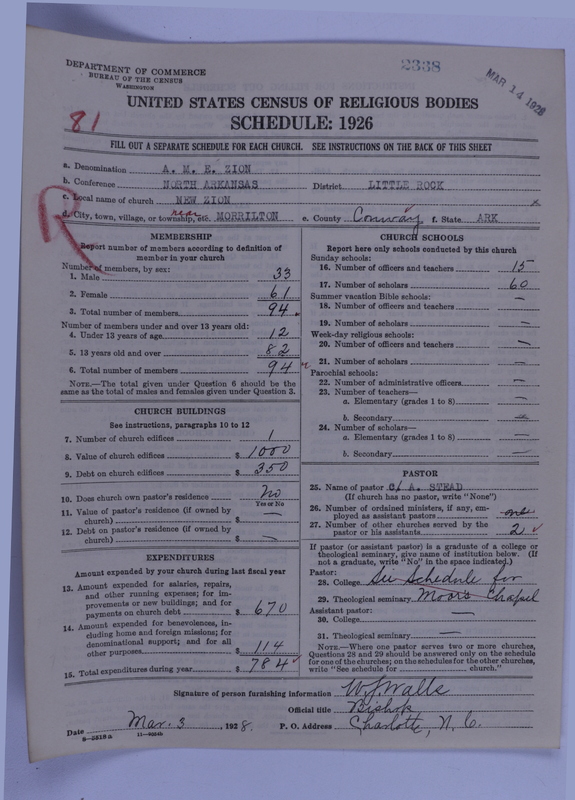 DEPARTMENT OF COMMERCE
BUREAU OF THE CENSUS
WASHINGTON
2338
MAR 14 1928
UNITED STATES CENSUS OF RELIGIOUS BODIES
81
SCHEDULE: 1926
FILL OUT A SEPARATE SCHEDULE FOR EACH CHURCH. SEE INSTRUCTIONS ON THE BACK OF THIS SHEET
R
a. Denomination A. M. E. ZION
b. Conference NORTH ARKANSAS District LITTLE ROCK
c. Local name of church NEW ZION
d. City, town, village, or township, etc. near MORRILTON e. County Conway f. State ARK
MEMBERSHIP
Report number of members according to definition of member in your church
Number of members, by sex:
1. Male 33
2. Female 61
3. Total number of members 94
Number of members under and over 13 years old:
4. Under 13 years of age 12
5. 13 years old and over 82
6. Total number of members 94
NOTE.—The total given under Question 6 should be the
same as the total of males and females given under Question 3.
CHURCH BUILDINGS
See instructions, paragraphs 10 to 12
7. Number of church edifices 1
8. Value of church edifices $ 1000
9. Debt on church edifices $ 350
10. Does church own pastor's residence No
Yes or No
11. Value of pastor's residence (if owned by
church) $ —
12. Debt on pastor's residence (if owned by
church) $ —
EXPENDITURES
Amount expended by your church during last fiscal year
13. Amount expended for salaries, repairs,
and other running expenses; for im-
provements or new buildings; and for
payments on church debt $ 670
14. Amount expended for benevolences, in-
cluding home and foreign missions; for
denominational support; and for all
other purposes $ 114
15. Total expenditures during year $ 784
CHURCH SCHOOLS
Report here only schools conducted by this church
Sunday schools:
16. Number of officers and teachers 15
17. Number of scholars 60
Summer vacation Bible schools:
18. Number of officers and teachers —
19. Number of scholars —
Week-day religious schools:
20. Number of officers and teachers —
21. Number of scholars —
Parochial schools:
22. Number of administrative officers —
23. Number of teachers—
a. Elementary (grades 1 to 8) —
b. Secondary —
24. Number of scholars—
a. Elementary (grades 1 to 8) —
b. Secondary —
PASTOR
25. Name of pastor C. A. STEAD
(If church has no pastor, write "None")
26. Number of ordained ministers, if any, em-
ployed as assistant pastors one
27. Number of other churches served by the
pastor or his assistants 2
If pastor (or assistant pastor) is a graduate of a college or
theological seminary, give name of institution below. (If
not a graduate, write "No" in the space indicated.)
Pastor:
28. College See Schedule for
29. Theological seminary Moors Chapel
Assistant pastor:
30. College —
31. Theological seminary —
NOTE.—Where one pastor serves two or more churches,
Questions 28 and 29 should be answered only on the schedule
for one of the churches; on the schedules for the other churches,
write "See schedule for church."
Signature of person furnishing information W J Walls
Official title Bishop
Date Mar. 3, 1928. P. O. Address Charlotte, N. C.
8-5518a